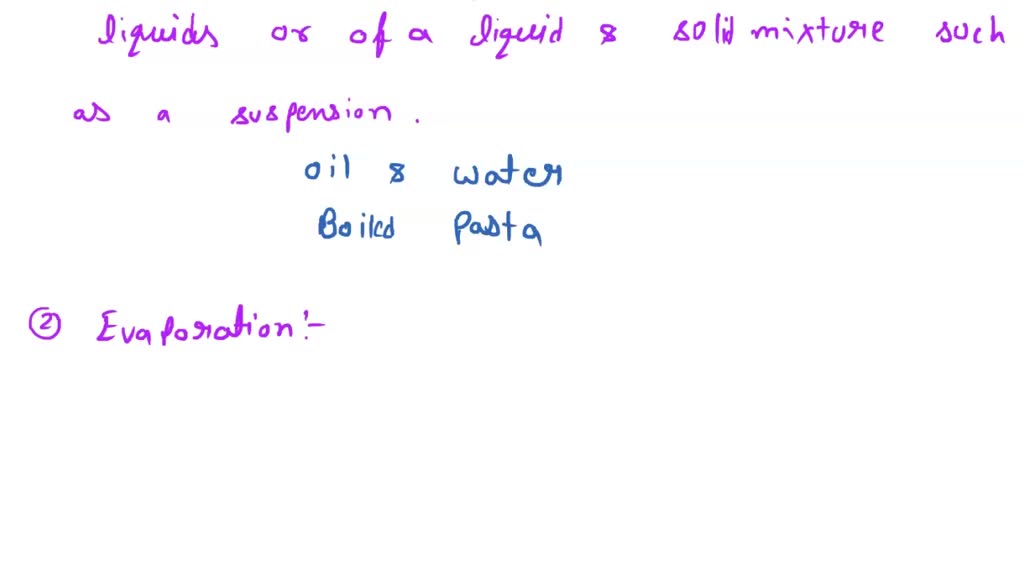 liquids or of a liquid & solid mixture such
as a suspension.
oil & water
Boiled Pasta
② Evaporation:-